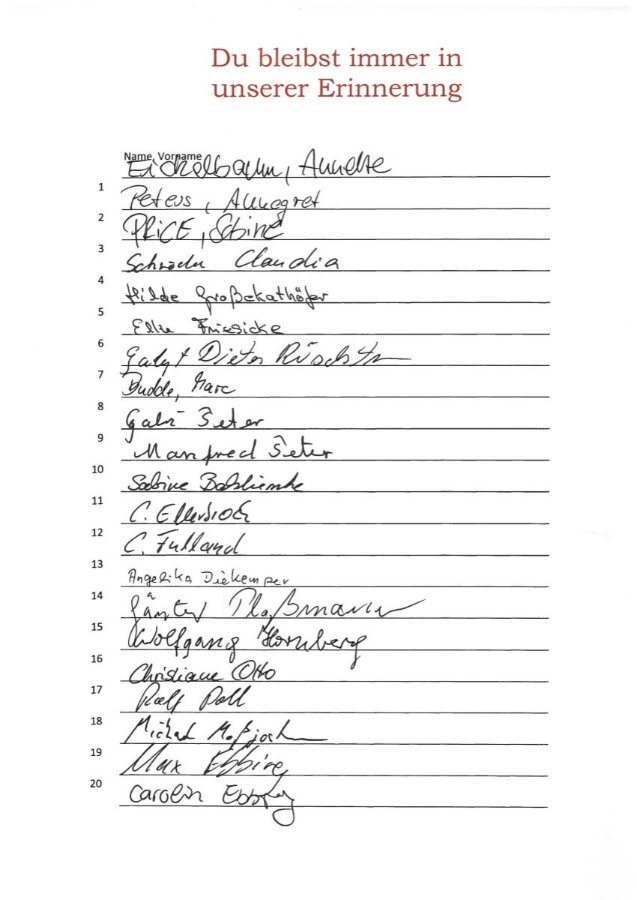 Du bleibst immer in
unserer Erinnerung
Name, Vorname
Eickelbaum, Annette
1
Peters, Annegret
2
PRiCE, Sabine
3
Schröder Claudia
4
Hilde Großekathöfer
5
Elke Friesicke
6
Dieter
7
Budde, Marc
8
Gabi Peter
9
Manfred Peter
10
Sabine
11
C. Ellerbrock
12
C. Fulland
13
Angelika Diekemper
14
Günter Plaßmann
15
Wolfgang Hornberg
16
Christiane Otto
17
Ralf Poll
18
Michael
19
Max Ebbing
20
Carolin Ebbing